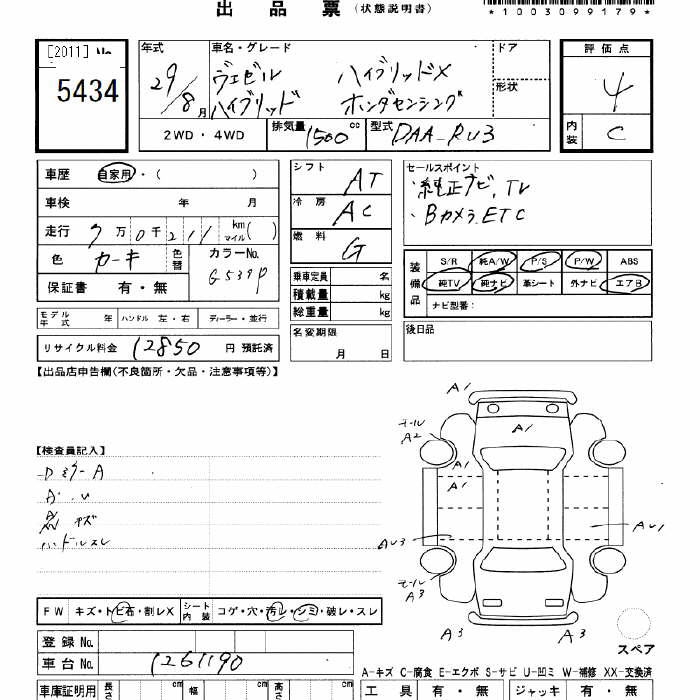 出品票（状態説明書）
*1003099179*
[2011] No
5434
年式
29/8月
車名・グレード
ヴェゼル ハイブリッドX
ハイブリッド ホンダセンシング
ドア
形状
評価点
4
内装
C
2WD・4WD
排気量 1500 cc
型式 DAA-RU3
車歴 自家用・（ ）
車検 年 月
走行 7万0千211 km マイル( )
色 カーキ
色替
カラーNo.
G539P
保証書 有・無
シフト AT
冷房 AC
燃料 G
乗車定員 名
積載量 kg
総重量 kg
名変期限
月 日
セールスポイント
・純正ナビ,TV
・Bカメラ.ETC
装備品
S/R 純A/W P/S P/W ABS
純TV 純ナビ 革シート 外ナビ エアB
ナビ型番：
後日品
モデル年式 年 ハンドル 左・右 ディーラー・並行
リサイクル料金 12850 円 預託済
【出品店申告欄(不良箇所・欠品・注意事項等)】
【検査員記入】
ハンドルスレ
A1
A1
モール
A2
A1
A1
AU3
AU1
モール
A3
A3
A3
スペア
FW キズ・トビ石・割レX
シート内装 コゲ・穴・汚レ・シミ・破レ・スレ
登録No.
車台No. 1261190
A-キズ C-腐食 E-エクボ S-サビ U-凹ミ W-補修 XX-交換済
車庫証明用 長さ cm 幅 cm 高さ cm
工具 有・無 ジャッキ 有・無